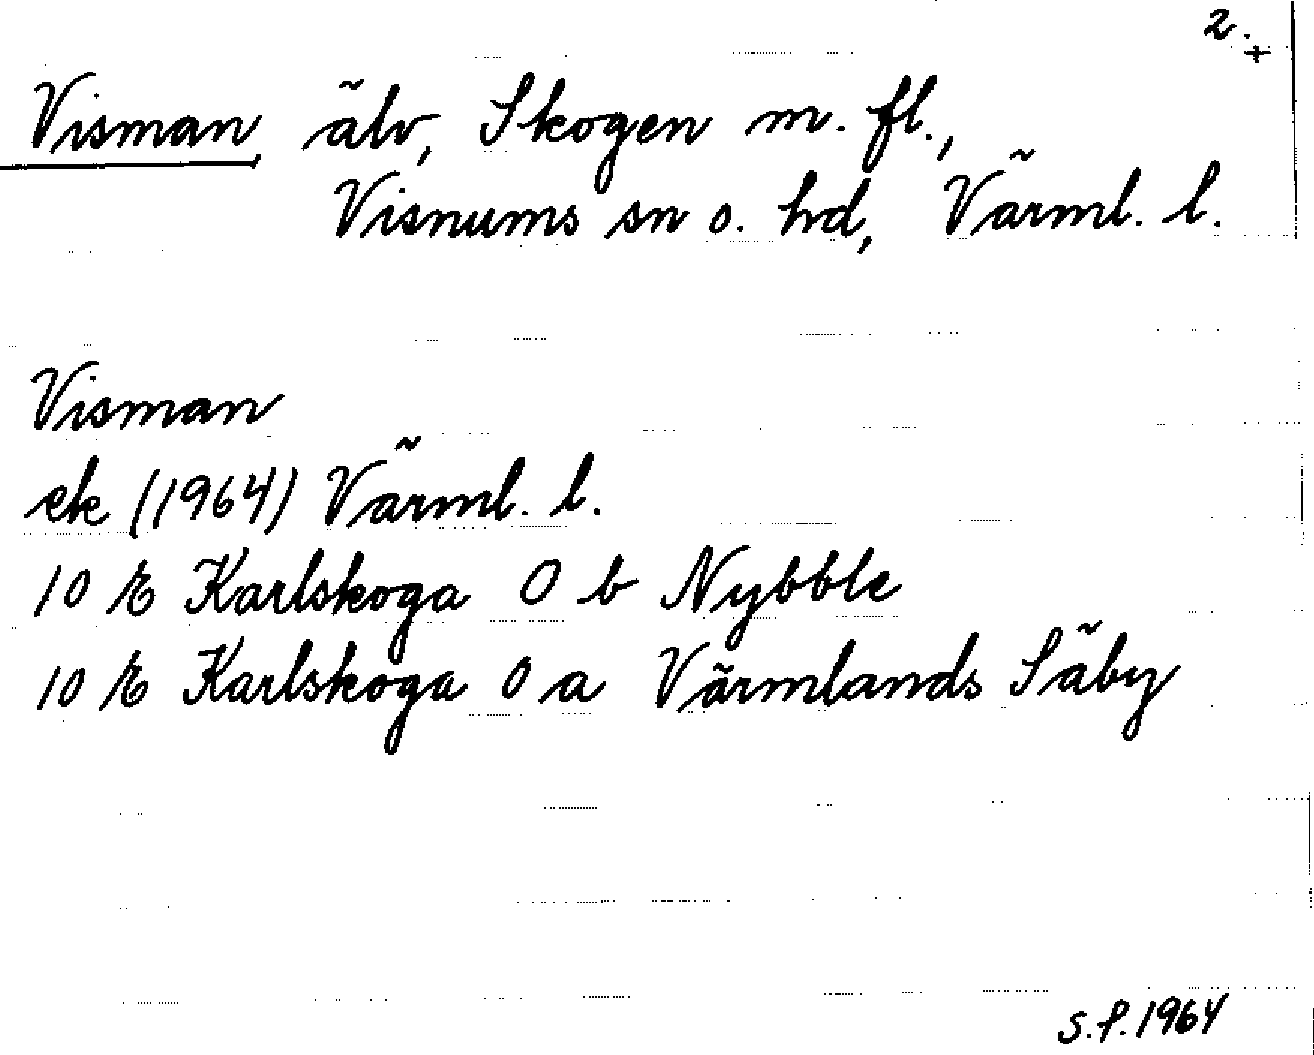 2.
+
Visman, älv, Skogen m. fl.,
Visnums sn o. hd, Värml. l.
Visman
ek (1964) Värml. l.
10 E Karlskoga 0 b Nybble
10 E Karlskoga 0 a Värmlands Säby
S.P. 1964